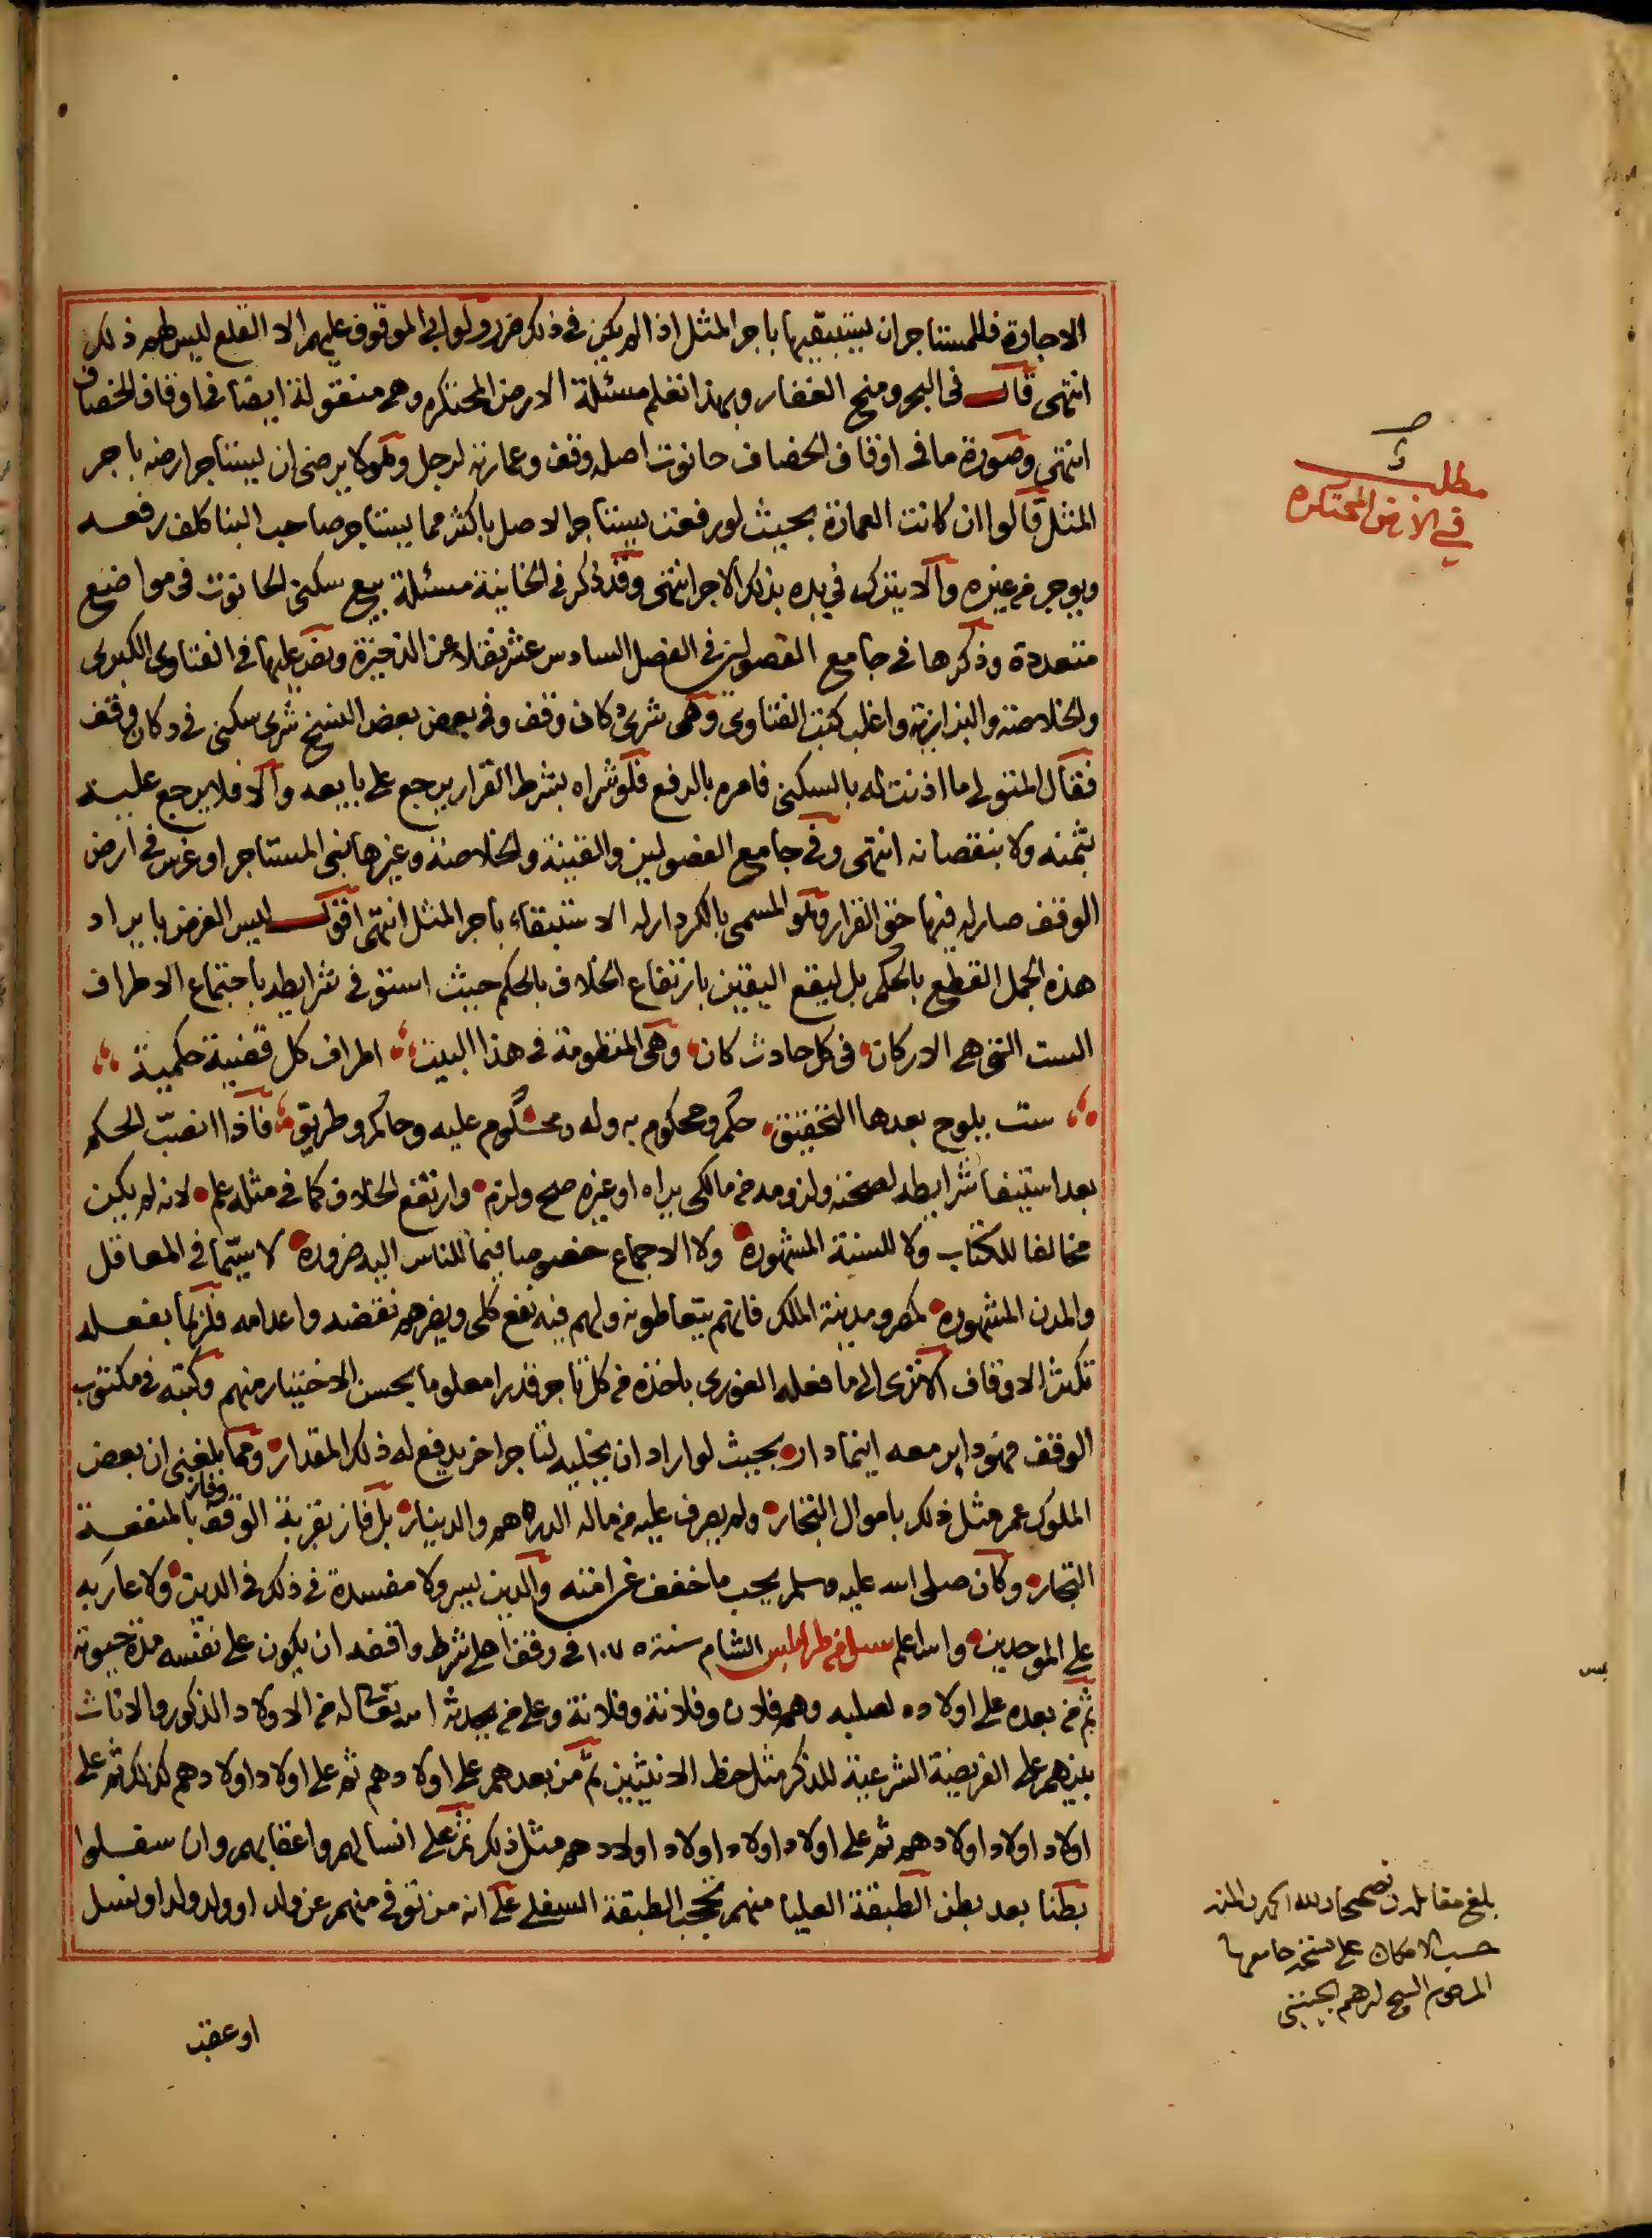 الاجارة فللمستاجر ان يستبقيها باجر المثل اذا لم يكن في ذلك ضرر ولو ابى الموقوف عليهم الا القلع ليس لهم ذلك
انتهى قال في البحر ومنح الغفار وبهذا تعلم مسئلة الارض المحتكره وهى منقولة ايضا في اوقاف الخصاف
انتهى وصورة ما في اوقاف الخصاف حانوت اصله وقف وعمارته لرجل وهو لا يرضى ان يستاجر ارضه باجر
المثل قالوا ان كانت العمارة بحيث لو رفعت يستاجر الاصل باكثر مما يستاجر صاحب البنا كلف رفعه
ويوجر من غيره والا يترك في يده بذلك الاجر انتهى وقد ذكر في الخانية مسئلة بيع سكنى الحانوت في مواضع
متعددة وذكرها في جامع الفصولين في الفصل السادس عشر نقلا عن الذخيرة ونص عليها في الفتاوى الكبرى
والخلاصة والبزازية واغلب كتب الفتاوى وهى شرى دكان وقف وفي بعض بعض النسخ شرى سكنى في دكان وقف
فقال المتولي ما اذنت له بالسكنى فامره بالرفع فلو شراه بشرط القرار يرجع على بايعه والا فلا يرجع عليه
بثمنه ولا بنقصانه انتهى وفي جامع الفصولين والقنية والخلاصة وغيرها بنى المستاجر او غرس في ارض
الوقف صار له فيها حق القرار وهو المسمى بالكردار له الاستبقاء باجر المثل انتهى اقول ليس الغرض بايراد
هذه الجمل القطع بالحكم بل ليقع اليقين بارتفاع الخلاف بالحكم حيث استوفى شرايطه باجتماع الاطراف
الست التي هي الاركان في كل حادث كان وهى المنظومة في هذا البيت اطراف كل قضية حكمية
ست يلوح بعدها التحقيق حكم ومحكوم به وله ومحكوم عليه وحاكم وطريق فاذا انصب الحكم
بعد استيفا شرايطه لصحته ولزومه من مالكي يراه او غيره صح ولزم وارتفع الخلاف كما في مثله علم لانه لم يكن
مخالفا للكتاب ولا للسنة المشهورة ولا الاجماع خصوصا فيما للناس اليه ضرورة لا سيما في المعاقل
والمدن المشهورة كمصر ومدينة الملك فانهم يتعاطونه ولهم فيه نفع كلى ويضرهم نقضه واعدامه فلربما بفعله
تكثر الاوقاف الا ترى الى ما فعله الغورى باخذه من كل تاجر قدرا معلوما بحسن الاختيار منهم وكتبه في مكتوب
الوقف فهو داير معه اينما دار بحيث لو اراد ان يخليه لتاجر اخر يدفع له ذلك المقدار ومما بلغني ان بعض
الملوك عمر مثل ذلك باموال التجار ولم يصرف عليه من ماله الدرهم والدينار بل فاز بقربة الوقف وفاز بالمنفعة
التجار وكان صلى الله عليه وسلم يحب ما خفف عن امته والدين يسر ولا مفسدة في ذلك في الدين ولا عار به
على الموحدين والله اعلم سئل في طرابلس الشام سنة ١٠٧٥ في وقف اهلى شرط واقفه ان يكون على نفسه مدة حيوته
ثم من بعده على اولاده لصلبه وهم فلان وفلانة وفلانة وعلى من يحدثه الله تعالى له من الاولاد الذكور والاناث
بينهم على الفريضة الشرعية للذكر مثل حظ الانثيين ثم من بعدهم على اولادهم ثم على اولاد اولادهم كذلك ثم على
اولاد اولاد اولادهم ثم على اولاد اولاد اولاد اولادهم مثل ذلك ثم على انسالهم واعقابهم وان سفلوا
بطنا بعد بطن الطبقة العليا منهم تحجب الطبقة السفلى على انه من توفي منهم عن ولد او ولد ولد او نسل
او عقب
مطلب
في الارض المحتكره
بلغ مقابلة وتصحيحا ولله الحمد والمنه
حسب الامكان على نسخة جامعها
المرحوم الشيخ ابرهيم الجينيني